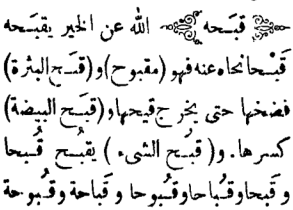 قبَحه الله عن الخير يقبَحه
قَبْحا نحاه عنه فهو (مقبوح) و (قبَـح البثرة)
فضخها حتى يخرج قيحها و (قبَـح البيضة)
كسرها. و (قبـُح الشيء) يقبـُح قـُبحا
و قَبحا و قـُباحا و قـُبوحا و قَباحة و قـُبوحة